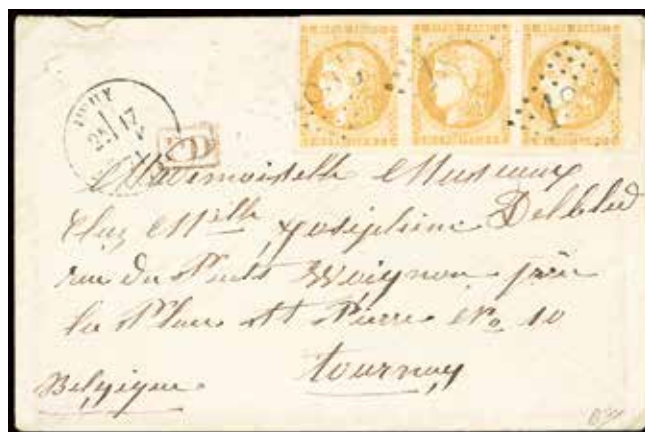 PD
Mademoiselle Museaux
Chez Mlle Joséphine Delbled
rue du Puits Woignon près
la Place St Pierre No 10
tournay
Belgique